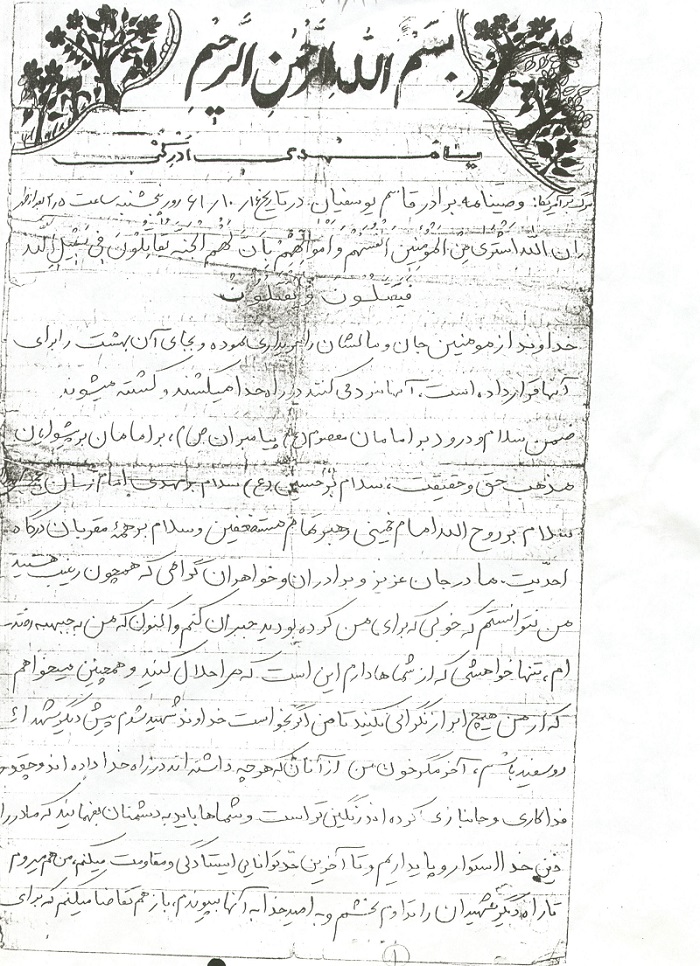 بِسْمِ اللهِ الرَّحْمٰنِ الرَّحِیْمِ
یا مهدی ادرکنی
مرگ بر آمریکا: وصیتنامه برادر قاسم یوسفیان. در تاریخ ۱۶ر۱۰ر۶۱ روز پنجشنبه ساعت ۲٫۵ بعدازظهر
اِنَّ اللّهَ اشْتَرى مِنَ الْمُؤْمِنینَ اَنْفُسَهُمْ وَاَمْوالَهُمْ بِاَنَّ لَهُمُ الْجَنَّه یُقاتِلُونَ فی سَبیلِ اللّه
فَیَقْتُلُونَ وَ یُقْتَلُونَ
خداوند از مومنین جان و مالشان را خریداری نموده و بجای آن بهشت را برای
آنها قرار داده است. آنها نبرد می کنند در راه خدا میکشند و کشته میشوند
ضمن سلام و درود بر امامان معصوم (ع) پیامبران (ص)، بر امامان بر پیشوایان
مذهب حق و حقیقت، سلام بر حسین (ع) سلام بر مهدی امام زمان
سلام بر روح الله امام خمینی رهبر تمام مستضعفین و سلام بر همهٔ مقربان درگاه
احدیت. مادر جان عزیز و برادران و خواهران گرامی که همچون زینب هستید
من نتوانستم که خوبی که برای من کرده بودید جبران کنم و اکنون که من به جبهه رفته
ام، تنها خواهشی که از شماها دارم این است که مرا حلال کنید و همچنین میخواهم
که از من هیچ ابراز نگرانی نکنید تا من اگر خواست خداوند شهید شدم پیش دیگر شهدا
رو سفید باشم، آخر مگر خون من از آنان که هر چه داشته اند در راه خدا داده اند و چقدر
فداکاری و جانبازی کرده اند رنگین تر است و شماها باید به دشمنان بفهمانید که ما در راه
دین خدا استوار و پایداریم و تا آخرین حد توانایی ایستادگی و مقاومت میکنم، من هم میروم
تا راه دیگر شهیدان را تداوم بخشم و به امید خدا به آنها بپیوندم، باز هم تقاضا میکنم که برای
۱